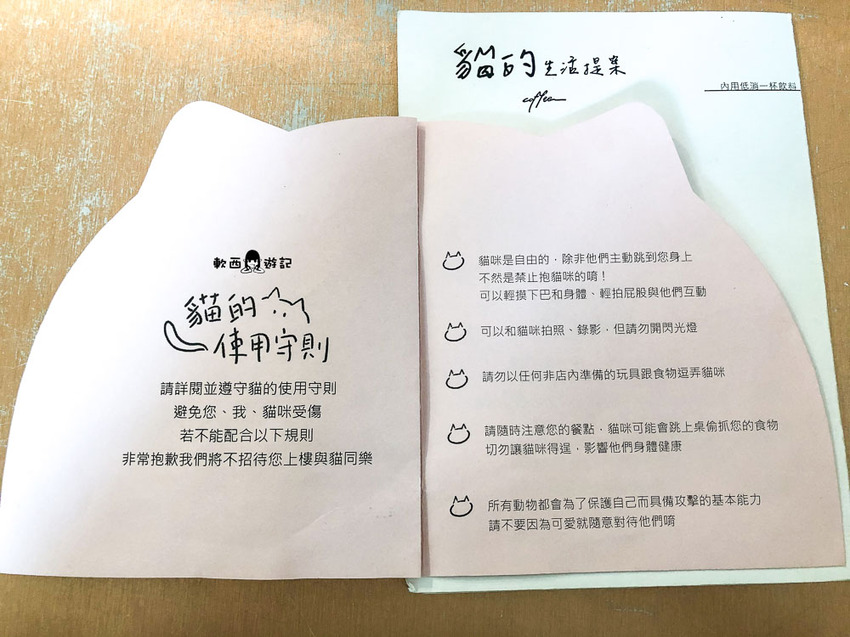 貓的生活提案
coffee
內用低消一杯飲料
軟西遊記
貓的
使用守則
請詳閱並遵守貓的使用守則
避免您、我、貓咪受傷
若不能配合以下規則
非常抱歉我們將不招待您上樓與貓同樂
貓咪是自由的，除非他們主動跳到您身上
不然是禁止抱貓咪的唷！
可以輕摸下巴和身體、輕拍屁股與他們互動
可以和貓咪拍照、錄影，但請勿開閃光燈
請勿以任何非店內準備的玩具跟食物逗弄貓咪
請隨時注意您的餐點，貓咪可能會跳上桌偷抓您的食物
切勿讓貓咪得逞，影響他們身體健康
所有動物都會為了保護自己而具備攻擊的基本能力
請不要因為可愛就隨意對待他們唷